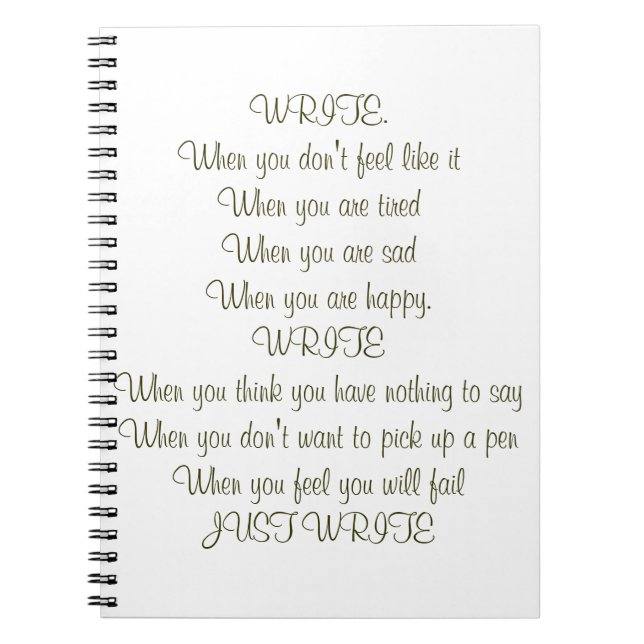 WRITE.
When you don't feel like it
When you are tired
When you are sad
When you are happy.
WRITE
When you think you have nothing to say
When you don't want to pick up a pen
When you feel you will fail
JUST WRITE